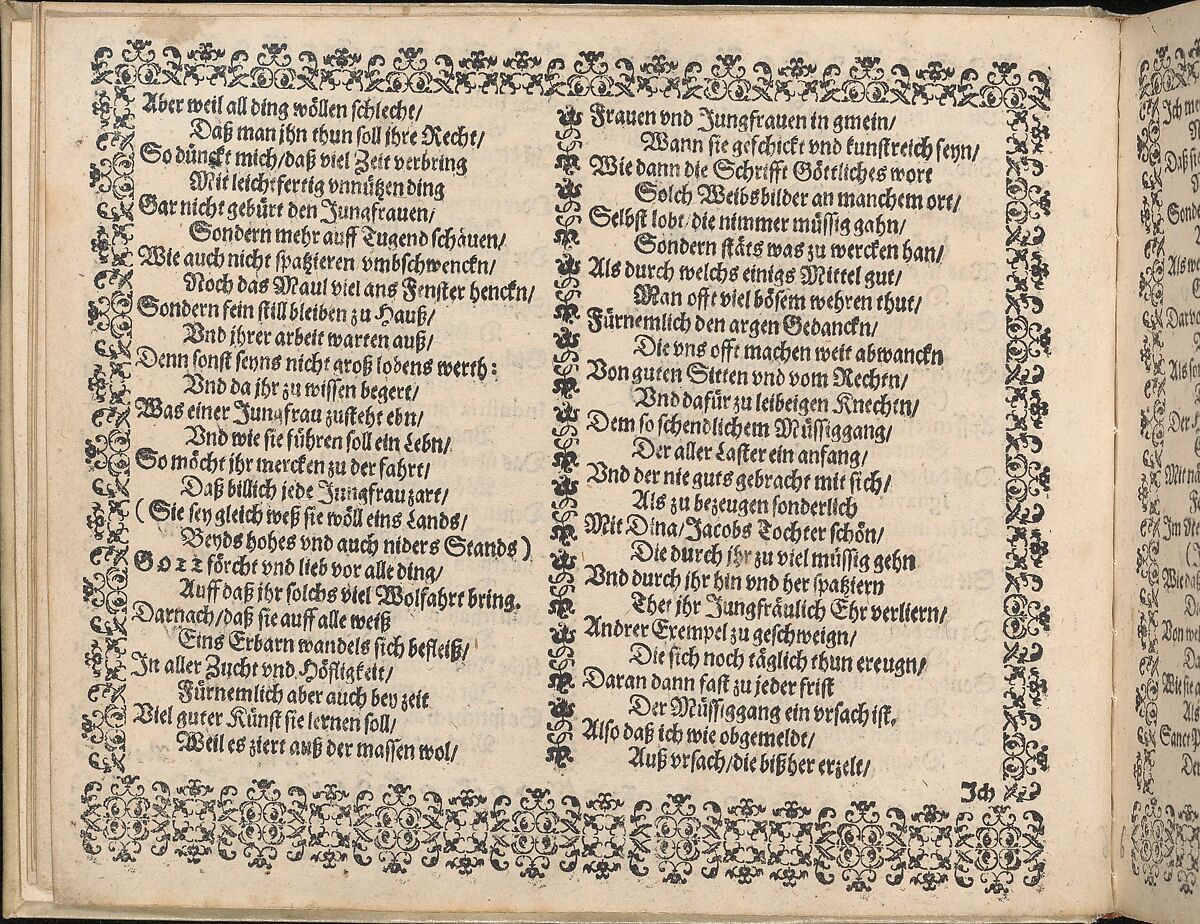 Aber weil all ding wöllen schlecht/
Daß man jhn thun soll jhre Recht/
So dünckt mich/daß viel Zeit verbring
Mit leichtfertig vnnützen ding
Gar nicht gebürt den Jungfrauen/
Sondern mehr auff Tugend schäuen/
Wie auch nicht spatzieren vmbschwenckn/
Noch das Maul viel ans Fenster henckn/
Sondern fein still bleiben zu Hauß/
Vnd jhrer arbeit warten auß/
Denn sonst seyns nicht groß lobens werth:
Vnd da jhr zu wissen begert/
Was einer Jungfrau zusteht ebn/
Vnd wie sie führen soll ein Lebn/
So möcht jhr mercken zu der fahrt/
Daß billich jede Jungfrau zart/
(Sie sey gleich weß sie wöll eins Lands/
Beyds hohes vnd auch niders Stands)
GOTT förcht vnd lieb vor alle ding/
Auff daß jhr solchs viel Wolfahrt bring.
Darnach/daß sie auff alle weiß
Eins Erbarn wandels sich befleiß/
In aller Zucht vnd Höfligkeit/
Fürnemlich aber auch bey zeit
Viel guter Künst sie lernen soll/
Weil es ziert auß der massen wol/
Frauen vnd Jungfrauen in gmein/
Wann sie geschickt vnd kunstreich seyn/
Wie dann die Schrifft Göttliches wort
Solch Weibsbilder an manchem ort/
Selbst lobt/die nimmer müssig gahn/
Sondern stäts was zu wercken han/
Als durch welchs einigs Mittel gut/
Man offt viel bösem wehren thut/
Fürnemlich den argen Gedanckn/
Die vns offt machen weit abwanckn
Von guten Sitten vnd vom Rechtn/
Vnd dafür zu leibeigen Knechtn/
Dem so schendlichem Müssiggang/
Der aller Laster ein anfang/
Vnd der nie guts gebracht mit sich/
Als zu bezeugen sonderlich
Mit Dina/Jacobs Tochter schön/
Die durch jhr zu viel müssig gehn
Vnd durch jhr hin vnd her spatziern
Thet jhr Jungfräulich Ehr verliern/
Andrer Exempel zu geschweign/
Die sich noch täglich thun ereugn/
Daran dann fast zu jeder frist
Der Müssiggang ein vrsach ist.
Also daß ich wie obgemeldt/
Auß vrsach/die bißher erzelt/
Ich